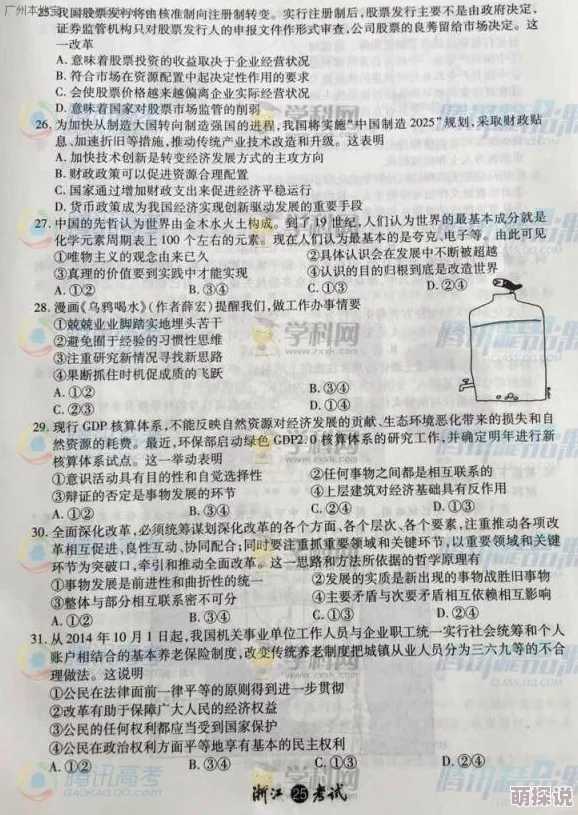 广州本地宝
25. 我国股票发行将由核准制向注册制转变。实行注册制后,股票发行主要不是由政府决定,
证券监管机构只对股票发行人的申报文件作形式审查,公司股票的良莠留给市场决定。这
一改革
A. 意味着股票投资的收益取决于企业经营状况
B. 符合市场在资源配置中起决定性作用的要求
C. 会使股票价格越来越偏离企业实际经营状况
D. 意味着国家对股票市场监管的削弱
26. 为加快从制造大国转向制造强国的进程,我国将实施“中国制造 2025”规划,采取财政贴
息、加速折旧等措施,推动传统产业技术改造和升级。这表明
A. 加快技术创新是转变经济发展方式的主攻方向
B. 财政政策可以促进资源合理配置
C. 国家通过增加财政支出来促进经济平稳运行
D. 货币政策成为我国经济实现创新驱动发展的重要手段
27. 中国的先哲认为世界由金木水火土构成。到了 19 世纪,人们认为世界的最基本成分就是
化学元素周期表上 100 个左右的元素。现在人们认为最基本的是夸克、电子等。由此可见
①唯物主义的观念由来已久 ②具体认识会在发展中不断被超越
③真理的价值要到实践中才能实现 ④认识的目的归根到底是改造世界
A. ①② B. ③④ C. ①③ D. ②④
28. 漫画《乌鸦喝水》(作者薛宏)提醒我们,做工作办事情要
①兢兢业业脚踏实地埋头苦干
②避免囿于经验的习惯性思维
③注重研究新情况寻找新思路
④果断抓住时机促成质的飞跃
A. ①② B. ③④
C. ②③ D. ①④
29. 现行 GDP 核算体系,不能反映自然资源对经济发展的贡献、生态环境恶化带来的损失和自
然资源的耗费。最近,环保部启动绿色 GDP2.0 核算体系的研究工作,并确定明年进行新
核算体系试点。这一举动表明
①意识活动具有目的性和自觉选择性 ②任何事物之间都是相互联系的
③辩证的否定是事物发展的环节 ④上层建筑对经济基础具有反作用
A. ①② B. ③④ C. ②④ D. ①③
30. 全面深化改革,必须统筹谋划深化改革的各个方面、各个层次、各个要素,注重推动各项改
革相互促进、良性互动、协同配合;同时要注重抓重要领域和关键环节,以重要领域和关键
环节为突破口,牵引和推动全面改革。这一思路和方法所依据的哲学原理有
①事物发展是前进性和曲折性的统一 ②发展的实质是新出现的事物战胜旧事物
③整体与部分相互联系密不可分 ④主要矛盾与次要矛盾相互依赖相互影响
A. ①② B. ③④ C. ①③ D. ②④
31. 从 2014 年 10 月 1 日起,我国机关事业单位工作人员与企业职工统一实行社会统筹和个人
账户相结合的基本养老保险制度,改变传统养老制度把城镇从业人员分为三六九等的不合
理做法。这说明
①公民在法律面前一律平等的原则得到进一步贯彻
②改革有助于保障广大人民的经济权益
③公民的任何权利都应当受到国家保护
④公民在政治权利方面平等地享有基本的民主权利
A. ①② B. ③④ C. ①③ D. ②④
浙江 25 考试
腾讯高考
GAOKAO.QQ.COM
学科网
www.zxxk.com
腾讯精品课
CLASS.QQ.COM
萌探说